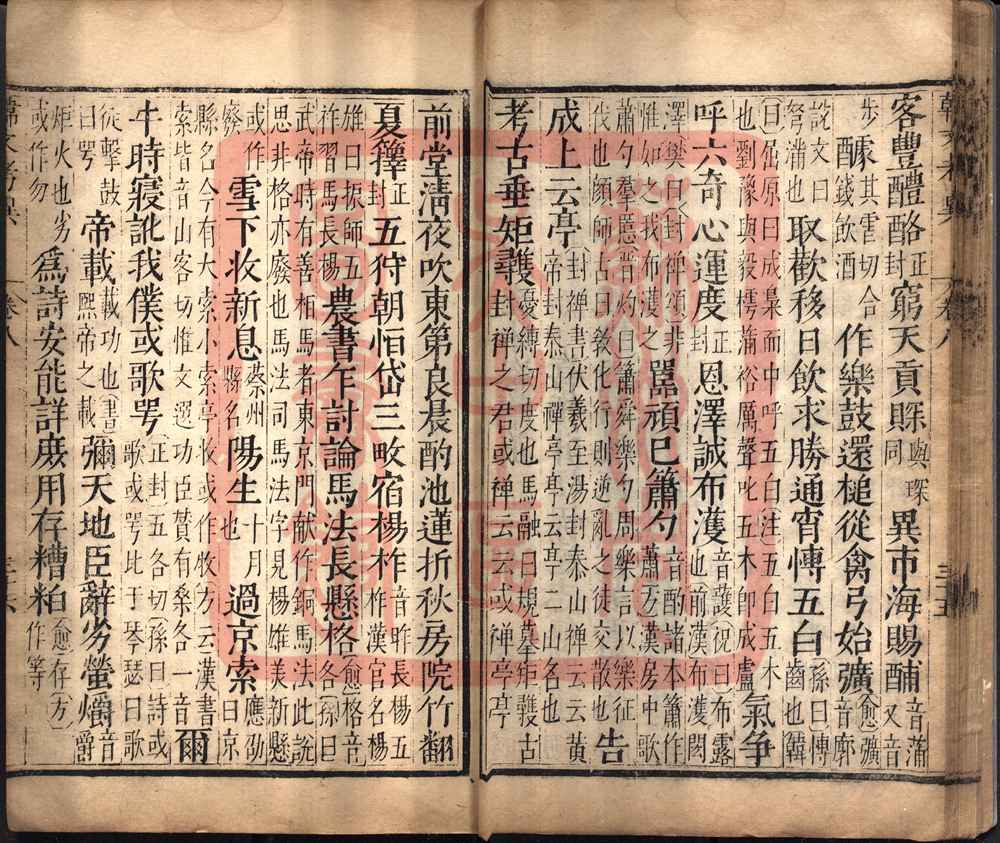 客豐醴酪正封窮天貢賝與琛同異市海賜酺音蒲又音
步醵其虐切合錢飲酒作樂鼓還槌從禽弓始彍愈彍音廓
説文曰弩滿也取歡移日飲求勝通宵愽五白孫曰愽齒也韓
曰屈原曰成梟而中呼五白注五白五木也劉豫與毅樗蒲裕厲聲叱五木即成盧氣争
呼六奇心運度正封恩澤誠布濩音護祝曰布露也前漢布濩閎
澤樊曰封禪頌非惟如之我布濩之嚚頑已簫勺音酌諸本簫作蕭方漢房中歌
蕭勺羣慝晉灼曰簫舜樂勺周樂言以樂征伐也顔師古曰敎化行則逆亂之徒交散也告
成上云亭封禪書伏羲至湯封泰山禪云云黄帝封泰山禪亭亭云亭二山名也
考古垂矩矱憂縛切度也馬融曰規摹矩矱古封禪之君或禪云云或禪亭亭
韓文考異 卷八 三十五
前堂淸夜吹東第良晨酌池蓮折秋房院竹翻
夏籜正封五狩朝恒岱三畋宿楊柞柞音昨長楊五柞漢官名楊
雄曰振師五柞習馬長楊農書乍討論馬法長懸格愈格音各孫曰
武帝時有善柏馬者東京門献作銅馬法此説思非格亦廢也馬法司馬法字見楊雄美新懸
或作廢雪下收新息蔡州縣名陽生十月也過京索應劭曰京
縣名今有大索小索亭收或作牧方云漢書索皆音山客切惟文選功臣贊有桑各一音爾
牛時寢訛我僕或歌咢正封五各切孫曰詩或歌或咢比于琴瑟曰歌
從擊鼓曰咢帝載載功也書熙帝之載彌天地臣辭劣螢爝音爵
炬火也劣或作勿爲詩安能詳庻用存糟粕愈存方作等
韓文考異 卷八 三十六